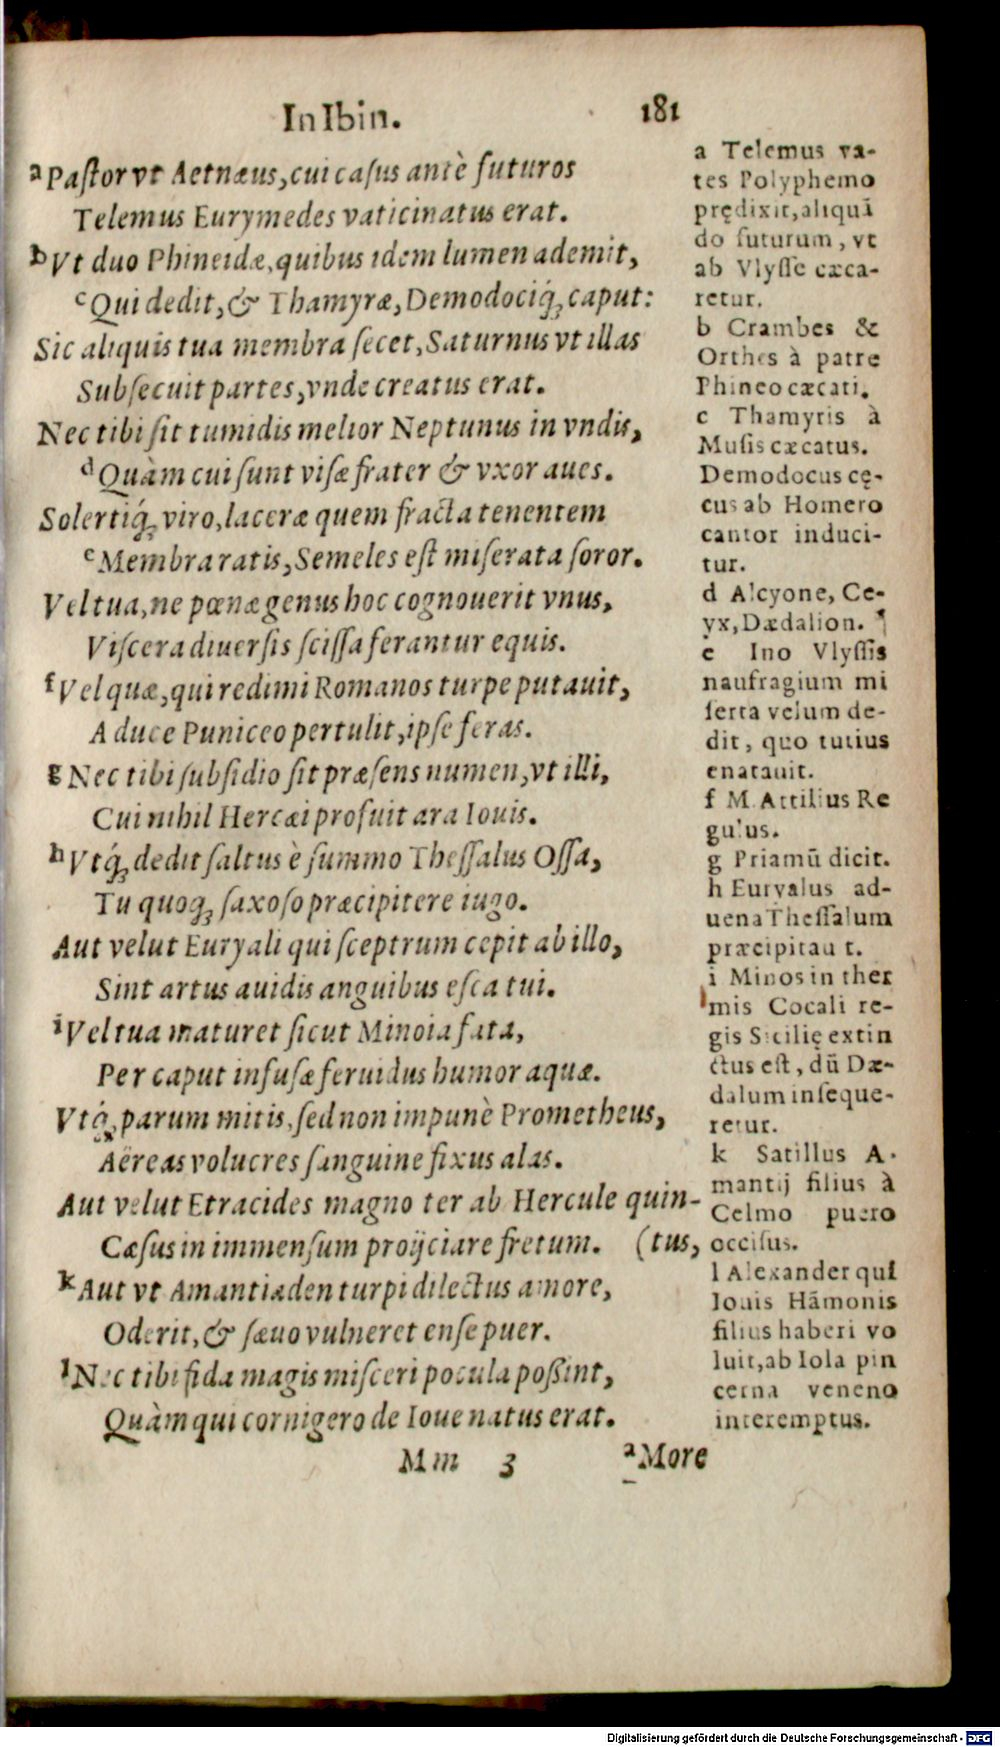 In Ibin. 181
a Pastor vt Aetnæus, cui casus antè futuros
Telemus Eurymedes vaticinatus erat.
b Vt duo Phineidæ, quibus idem lumen ademit,
c Qui dedit, & Thamyræ, Demodociq́; caput:
Sic aliquis tua membra secet, Saturnus vt illas
Subsecuit partes, vnde creatus erat.
Nec tibi sit tumidis melior Neptunus in vndis,
d Quàm cui sunt visæ frater & vxor aues.
Solertiq́; viro, laceræ quem fracta tenentem
e Membra ratis, Semeles est miserata soror.
Vel tua, ne pœnæ genus hoc cognouerit vnus,
Viscera diuersis scissa ferantur equis.
f Vel quæ, qui redimi Romanos turpe putauit,
A duce Puniceo pertulit, ipse feras.
g Nec tibi subsidio sit præsens numen, vt illi,
Cui nihil Hercæi profuit ara Iouis.
h Vtq́; dedit saltus è summo Thessalus Ossa,
Tu quoq; saxoso præcipitere iugo.
Aut velut Euryali qui sceptrum cepit ab illo,
Sint artus auidis anguibus esca tui.
i Vel tua maturet sicut Minoia fata,
Per caput infusæ feruidus humor aquæ.
Vtq́; parum mitis, sed non impunè Prometheus,
Aëreas volucres sanguine fixus alas.
Aut velut Etracides magno ter ab Hercule quin-
Cæsus in immensum proijciare fretum. (tus,
k Aut vt Amantiaden turpi dilectus amore,
Oderit, & sæuo vulneret ense puer.
l Nec tibi fida magis misceri pocula possint,
Quàm qui cornigero de Ioue natus erat.
Mm 3 a More
a Telemus va-
tes Polyphemo
prędixit, aliquā
do futurum, vt
ab Vlysse cæca-
retur.
b Crambes &
Orthes à patre
Phineo cæcati.
c Thamyris à
Musis cæcatus.
Demodocus cę-
cus ab Homero
cantor induci-
tur.
d Alcyone, Ce-
yx, Dædalion.
e Ino Vlyssis
naufragium mi
serta velum de-
dit, quo tutius
enatauit.
f M. Attilius Re
gulus.
g Priamū dicit.
h Euryalus ad-
uena Thessalum
præcipitau t.
i Minos in ther
mis Cocali re-
gis Sicilię extin
ctus est, dū Dæ-
dalum inseque-
retur.
k Satillus A-
mantij filius à
Celmo puero
occisus.
l Alexander qui
Iouis Hāmonis
filius haberi vo
luit, ab Iola pin
cerna veneno
interemptus.
Digitalisierung gefördert durch die Deutsche Forschungsgemeinschaft - DFG